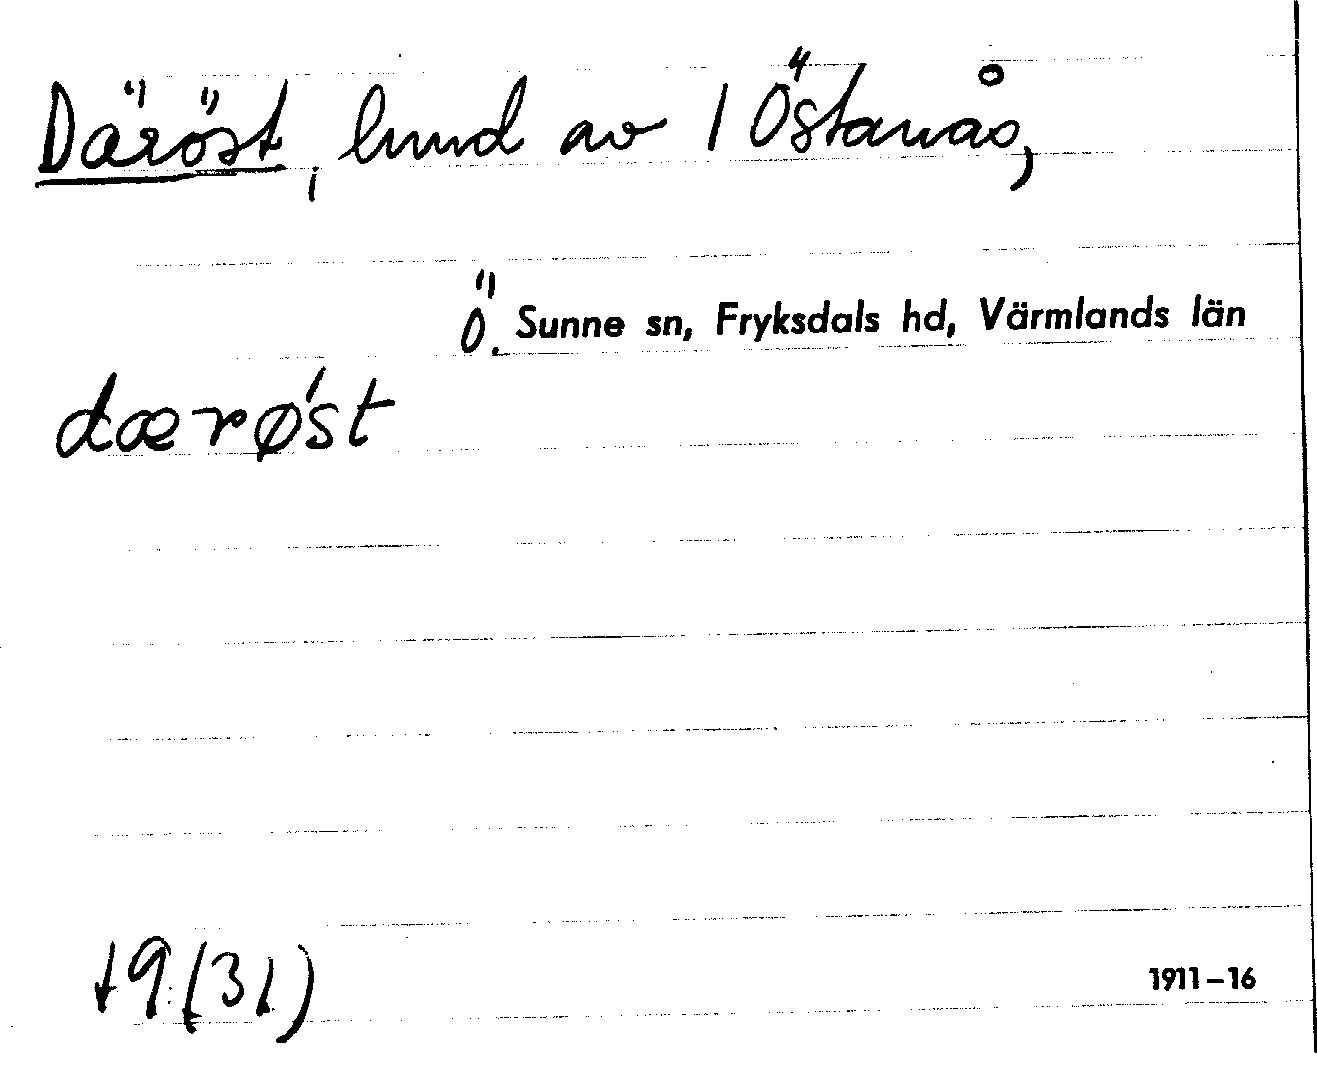 Däröst, lund av 1 Östanås,
Ö. Sunne sn, Fryksdals hd, Värmlands län
dærø´st
19 (31)
1911–16